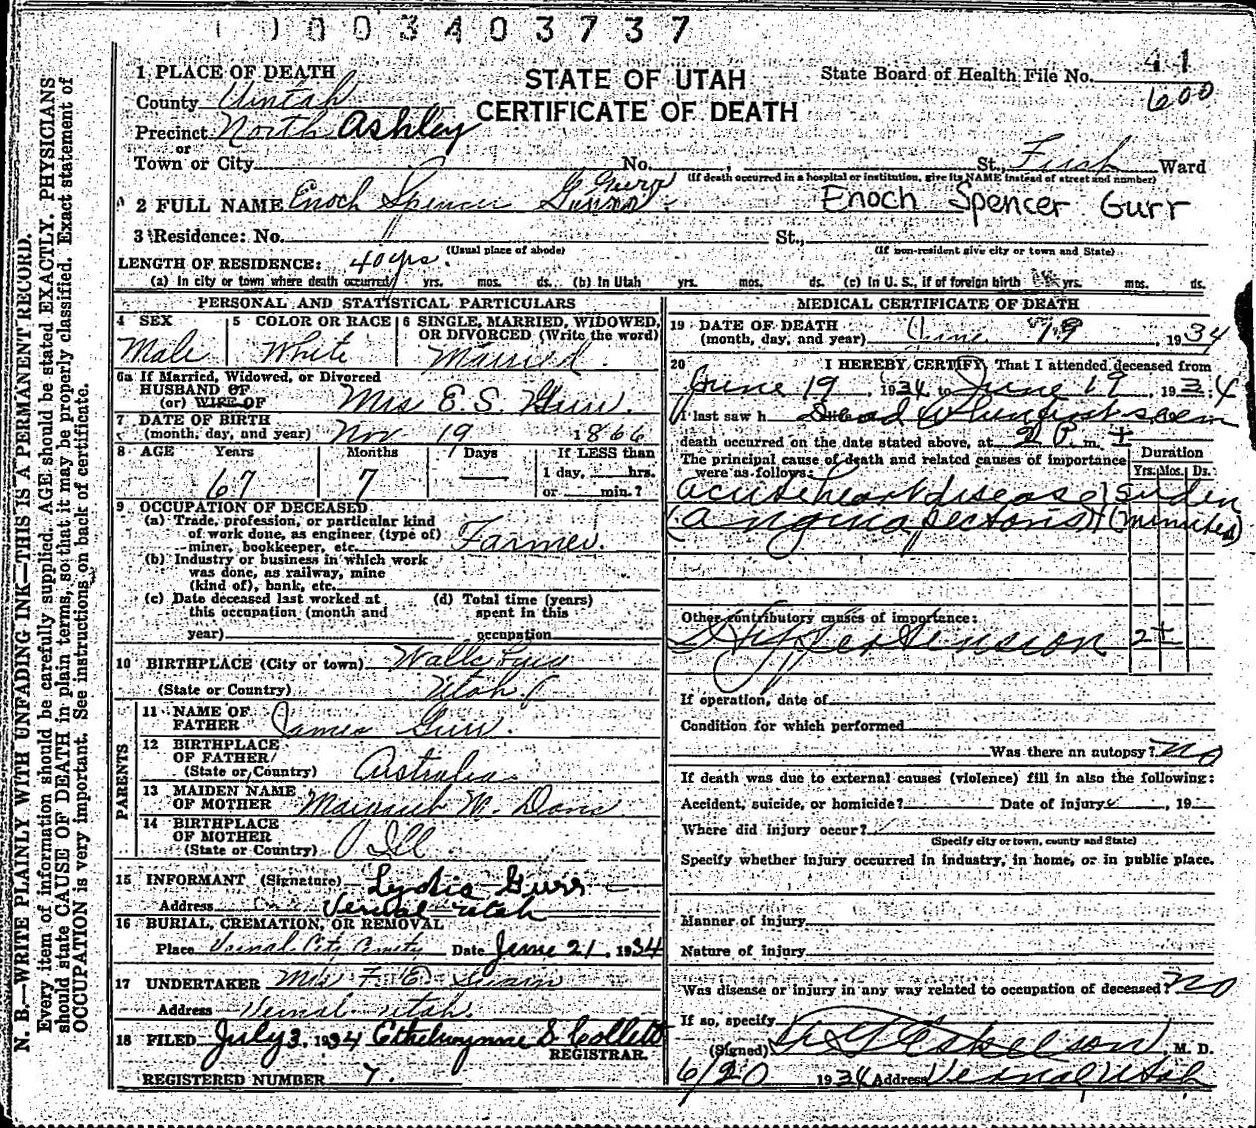 1 0 0 0 3 4 0 3 7 3 7
STATE OF UTAH
CERTIFICATE OF DEATH
State Board of Health File No. 41
600
1 PLACE OF DEATH
County Uintah
Precinct North Ashley
or
Town or City No. , St., Ward
(If death occurred in a hospital or institution, give its NAME instead of street and number)
2 FULL NAME Enoch Spencer Gurr Enoch Spencer Gurr
3 Residence: No. St.,
(Usual place of abode) (If non-resident give city or town and State)
LENGTH OF RESIDENCE: 40 yrs.
(a) In city or town where death occurred yrs. mos. ds. (b) In Utah yrs. mos. ds. (c) In U. S., if of foreign birth yrs. mos. ds.
PERSONAL AND STATISTICAL PARTICULARS
4 SEX Male
5 COLOR OR RACE White
6 SINGLE, MARRIED, WIDOWED, OR DIVORCED (Write the word) Married
6a If Married, Widowed, or Divorced
HUSBAND OF
(or) WIFE OF Mrs E. S. Gurr.
7 DATE OF BIRTH
(month, day, and year) Nov 19 1866
8 AGE Years Months Days If LESS than
1 day, hrs.
67 7 — or min.?
9 OCCUPATION OF DECEASED
(a) Trade, profession, or particular kind
of work done, as engineer (type of)
miner, bookkeeper, etc. Farmer.
(b) Industry or business in which work
was done, as railway, mine
(kind of), bank, etc.
(c) Date deceased last worked at
this occupation (month and
year)
(d) Total time (years)
spent in this
occupation
10 BIRTHPLACE (City or town)
(State or Country) Utah
PARENTS
11 NAME OF
FATHER James Gurr.
12 BIRTHPLACE
OF FATHER
(State or Country) Australia
13 MAIDEN NAME
OF MOTHER M.
14 BIRTHPLACE
OF MOTHER
(State or Country) Ill
15 INFORMANT (Signature) Lydia Gurr
Address Vernal Utah
16 BURIAL, CREMATION, OR REMOVAL
Place Vernal City Date June 21, 1934
17 UNDERTAKER Mrs F. E.
Address Vernal Utah.
18 FILED July 3, 1934 Ethelwynne S. Collett
REGISTRAR.
REGISTERED NUMBER 7.
MEDICAL CERTIFICATE OF DEATH
19 DATE OF DEATH
(month, day, and year) June 19 1934
20 I HEREBY CERTIFY That I attended deceased from
June 19 1934 to June 19, 1934
I last saw h Dead when first seen
death occurred on the date stated above, at 2 P. m. ±
The principal cause of death and related causes of importance
were as follows:
Duration
Yrs. Mos. Ds.
acute heart disease Suden
(angina pectoris) (minutes)
Other contributory causes of importance:
Hypertension 2±
If operation, date of
Condition for which performed
Was there an autopsy? No
If death was due to external causes (violence) fill in also the following:
Accident, suicide, or homicide? Date of injury , 19
Where did injury occur?
(Specify city or town, county and State)
Specify whether injury occurred in industry, in home, or in public place.
Manner of injury
Nature of injury
Was disease or injury in any way related to occupation of deceased? No
If so, specify
(Signed) Eskelson M. D.
6/20 1934 Address Vernal, Utah
N. B.—WRITE PLAINLY WITH UNFADING INK—THIS IS A PERMANENT RECORD.
Every item of information should be carefully supplied. AGE should be stated EXACTLY. PHYSICIANS
should state CAUSE OF DEATH in plain terms, so that it may be properly classified. Exact statement of
OCCUPATION is very important. See instructions on back of certificate.